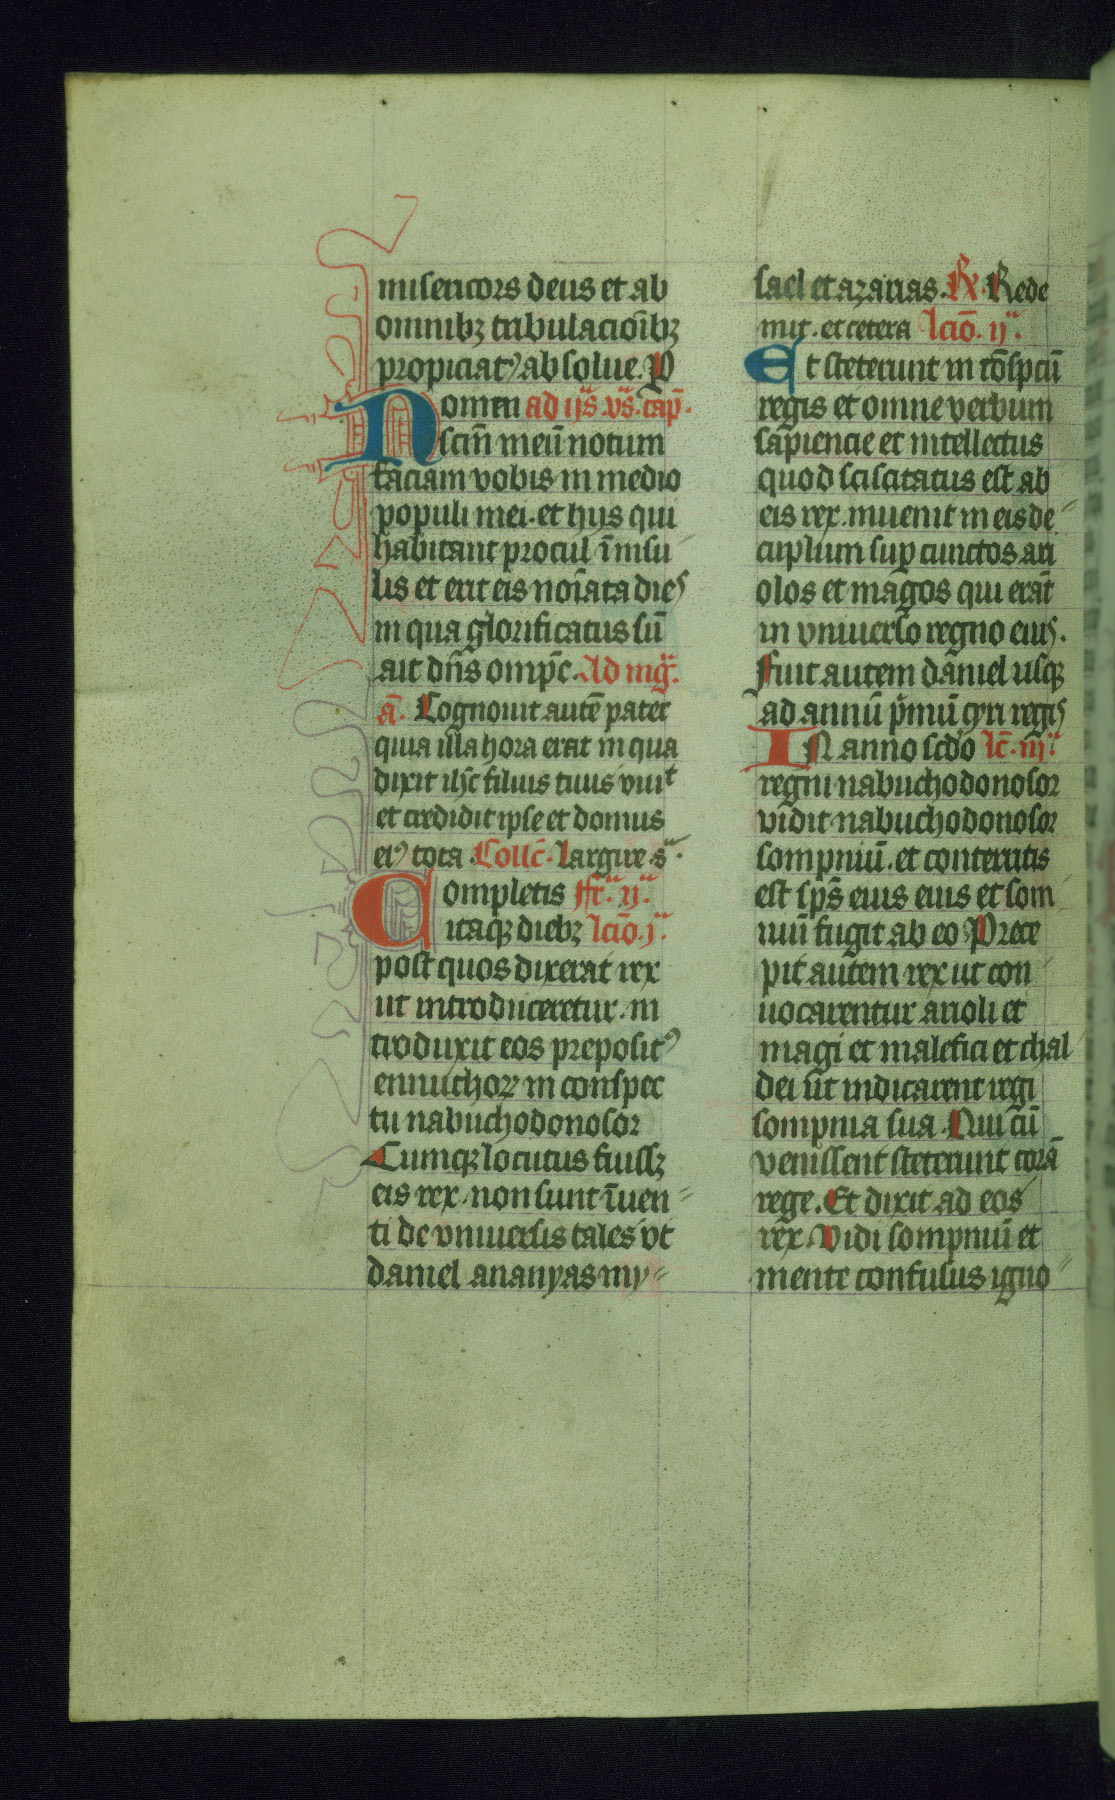 misericors deus et ab
omnibꝫ tribulacioībꝫ
propiciatꝰ absolue. P
Nomen ad ijᵃˢ vˢ. cap̄.
scīn meū notum
faciam vobis in medio
populi mei. et hijs qui
habitant procul ī insu
lis et erit eis noīata dies
in qua glorificatus sū
ait dn̄s omp̄c. Ad mg̃.
a͞. Cognouit autē pater
quia illa hora erat in qua
dixit ih̄c filius tuus viuit
et credidit ipse et domus
eiꝰ tota. Coll͞c. Largire. sᵃ.
Completis ffr̄. ijᵃ.
itaqꝫ diebꝫ lcīo. jᵃ.
post quos dixerat rex
ut introduceretur. in
troduxit eos preposit⁹
ennuchoꝝ in conspec
tu nabuchodonosor
Cumqꝫ locutus fuissꝫ
eis rex. non sunt īuen
ti de vniuersis tales vt
daniel ananyas my
sael et azarias. R̸. Rede
mit. et cetera lcīo. ijᵃ.
Et steterunt in cōspcū
regis et omne verbum
sapiencie et intellectus
quod sciscitatus est ab
eis rex. inuenit in eis de
cuplum suꝑ cunctos ari
olos et magos qui erāt
in vniuerso regno eius.
Fuit autem daniel usqꝫ
ad annū pͥmū cyri regis
IN anno scd̓o lc̄. iijᵃ
regni nabuchodonosor
vidit nabuchodonosor
sompniū. et conterritis
est sp̄s eius eius et som
niū fugit ab eo Prece
pit autem rex ut con
uocarentur arioli et
magi et malefici et chal
dei ut indicarent regi
sompnia sua. Qui cū
venissent steterunt corā
rege. Et dixit ad eos
rex. Vidi sompniū et
mente confusus igno